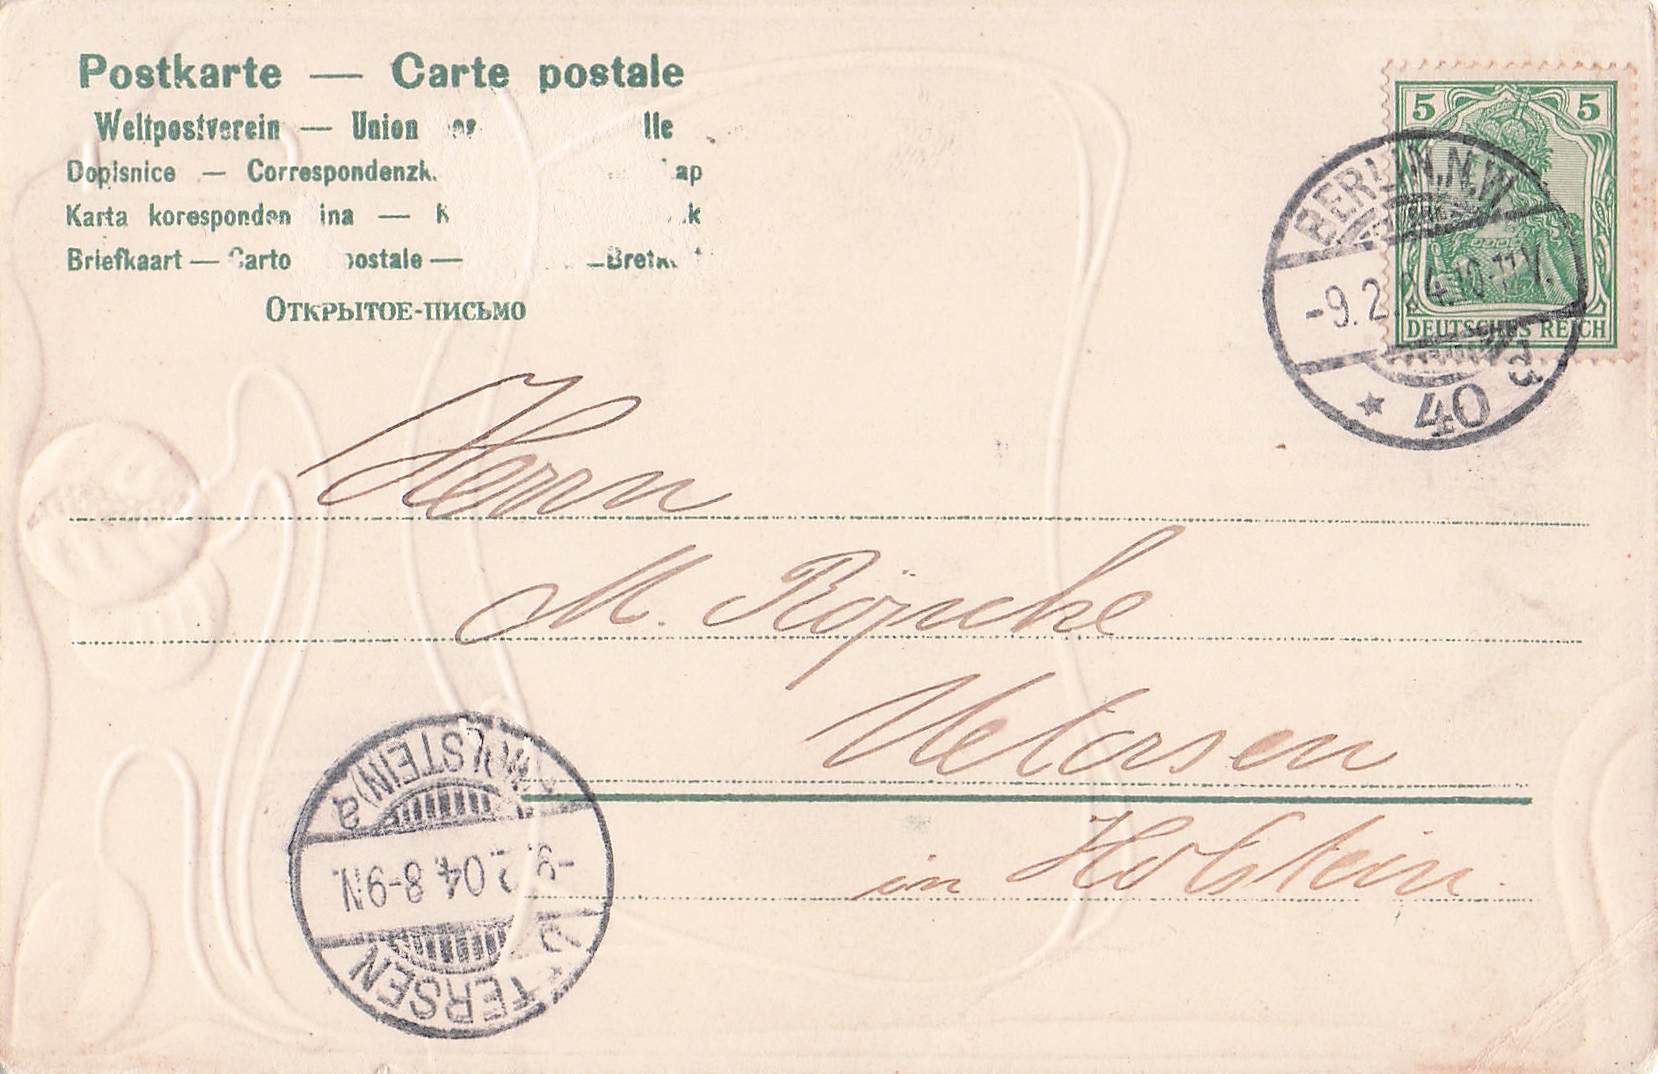 Postkarte — Carte postale
Weltpostverein — Union lle
Dopisnice — Correspondenzk. ap
Karta koresponden ina — k
Briefkaart — Carto postale — Bretk
Открытое-письмо
5 5
DEUTSCHES REICH
BERLIN.N.W.
-9.2. 4.10-11V.
* 40 d
Herrn
M. Röpcke
Uetersen
in Holstein.
TERSEN
-9.2.04.8-9N.
STEIN) a